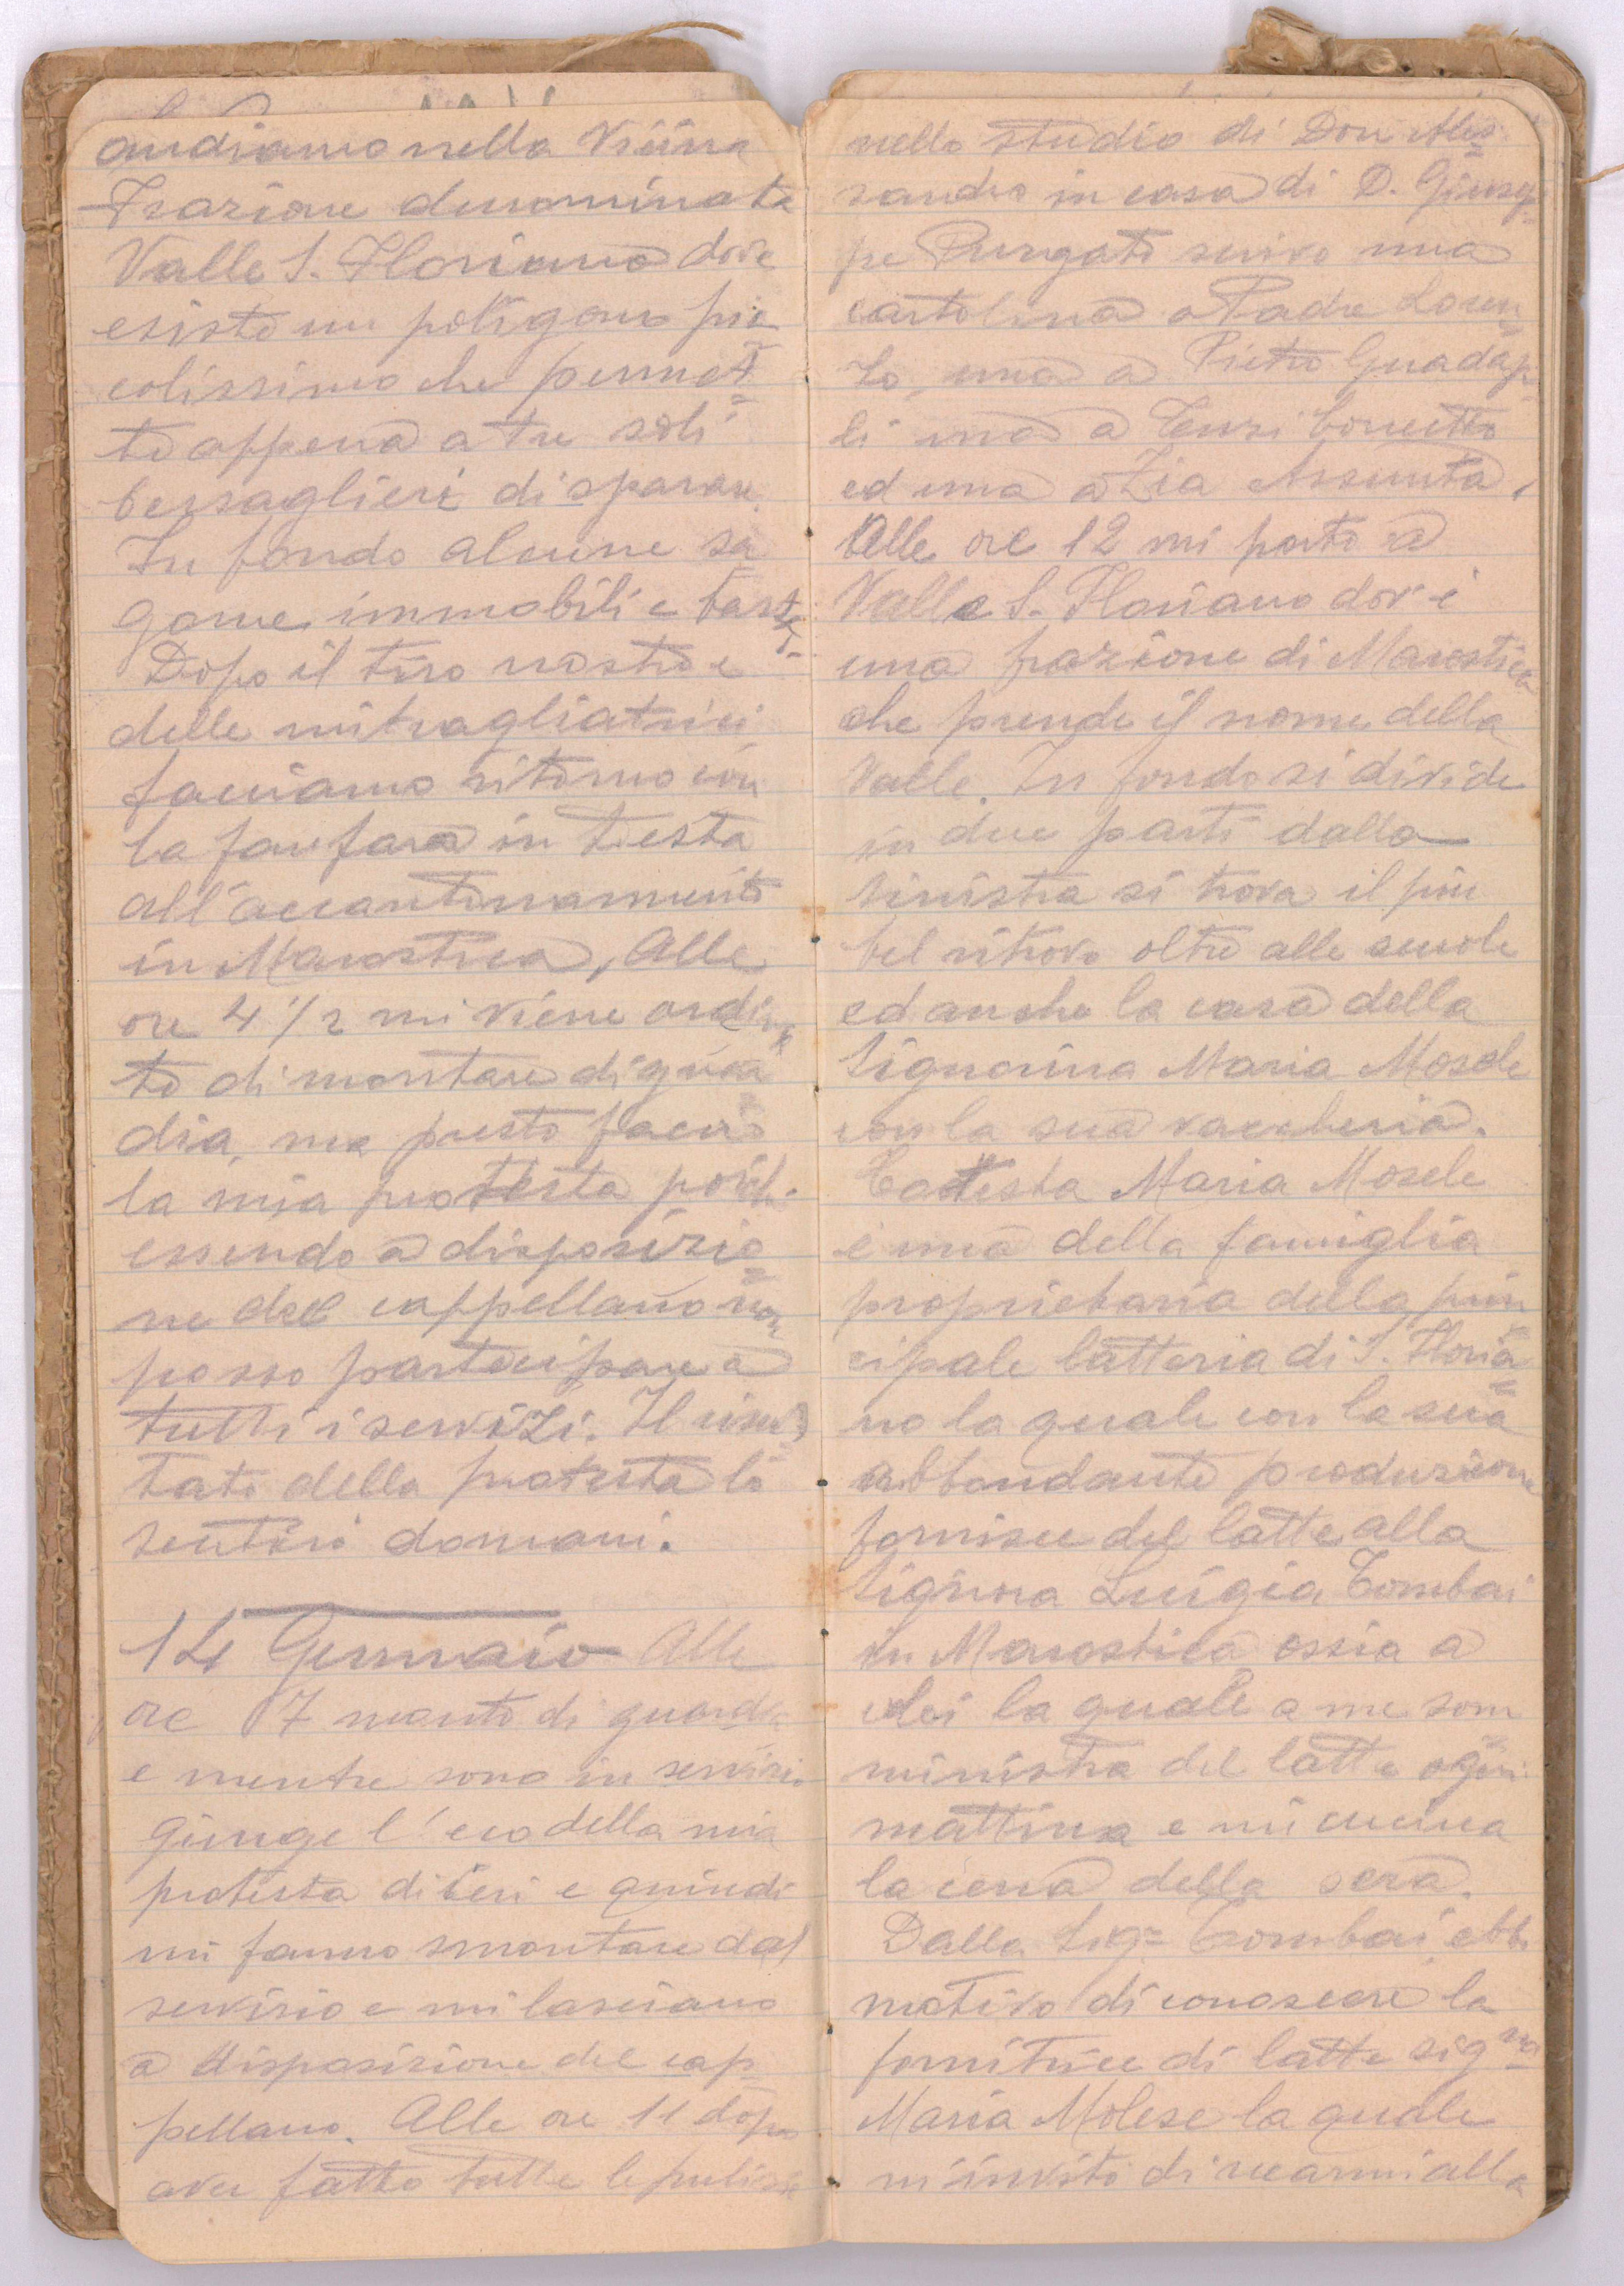 andiamo nella Viúna
Frazione denominata
Valle S. Floriano dove
esiste un poligono pic
colissimo che permet
te appena a tre soli
bersaglieri di sparare.
In fondo alcune sa
gome immobili e basta.
Dopo il tiro nostro e
delle mitragliatrici
facciamo ritorno con
la fanfara in testa
all'accantonamento
in Marostica, Alle
ore 4 1/2 mi viene ordina
to di montare di guar
dia, ma presto faccio
la mia protesta poichè
essendo a disposizio
ne del cappellano non
posso partecipare a
tutti i servizi. Il risul
tato della protesta lo
sentirò domani.
14 Gennaio Alle
ore 7 monto di guardia
e mentre sono in servizio
giunge l'eco della mia
protesta di ieri e quindi
mi fanno smontare dal
servizio e mi lasciano
a disposizione del cap
pellano. Alle ore 11 dopo
aver fatto tutte le pulizie
nello studio di Don Ales
sandro in casa di D. Giusep
pe Pungato scrivo una
cartolina a Padre Loren
zo, una a Pietro Guadap
li una a Tenzi Concetto
ed una a Zia Assunta,
Alle ore 12 mi porto a
Valle S. Floriano dov'è
una frazione di Marostica
che prende il nome della
Valle. In fondo si divide
in due parti dalla
sinistra si trova il più
bel ritrovo oltre alle scuole
ed anche la casa della
Signorina Maria Mosele
con la sua vaccheria.
Codesta Maria Mosele
è una della famiglia
proprietaria della prin
cipale latteria di S. Floria
no la quale con la sua
abbondante produzione
fornisce del latte alla
Signora Luigia Tombai
in Marostica ossia a
colei la quale a me som
ministra del latte ogni
mattina e mi cucina
la cena della sera.
Dalla Sig= Tombai ebbi
motivo di conoscere la
fornitrice di latte sig na
Maria Molese la quale
m'invitò di recarmi alla